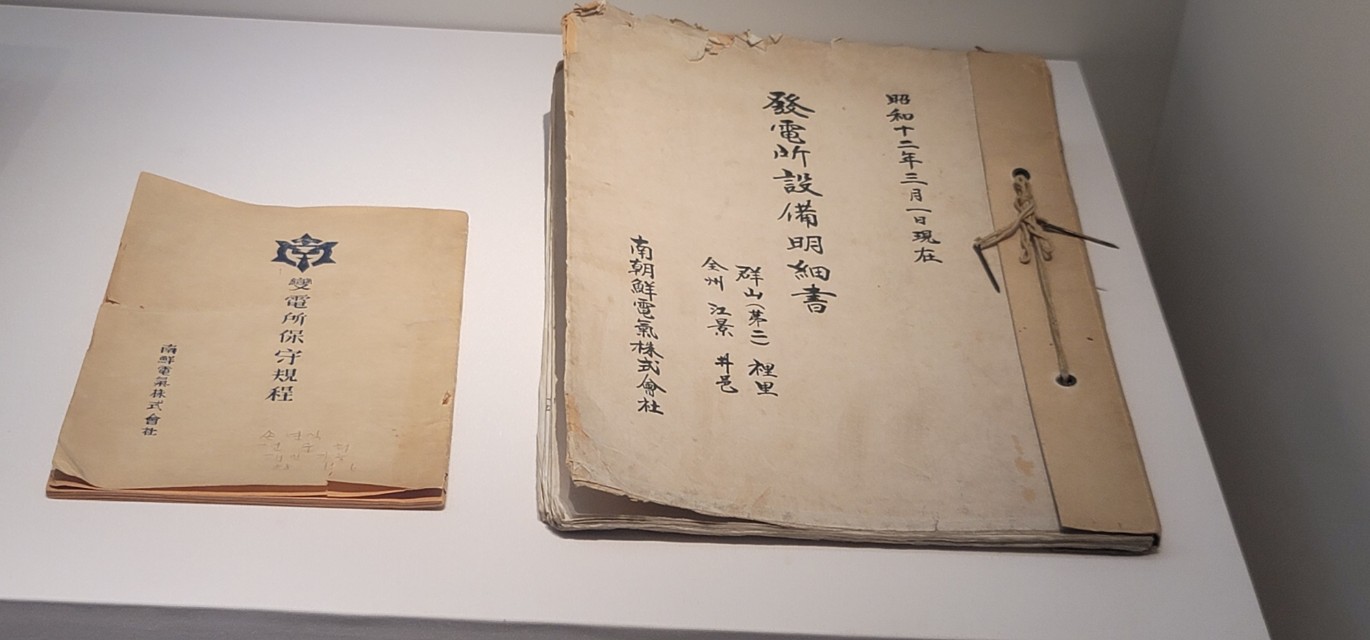 變電所保守規程
南鮮電氣株式會社
昭和十二年三月一日現在
發電所設備明細書
群山(第二) 裡里
全州 江景 井邑
南朝鮮電氣株式會社